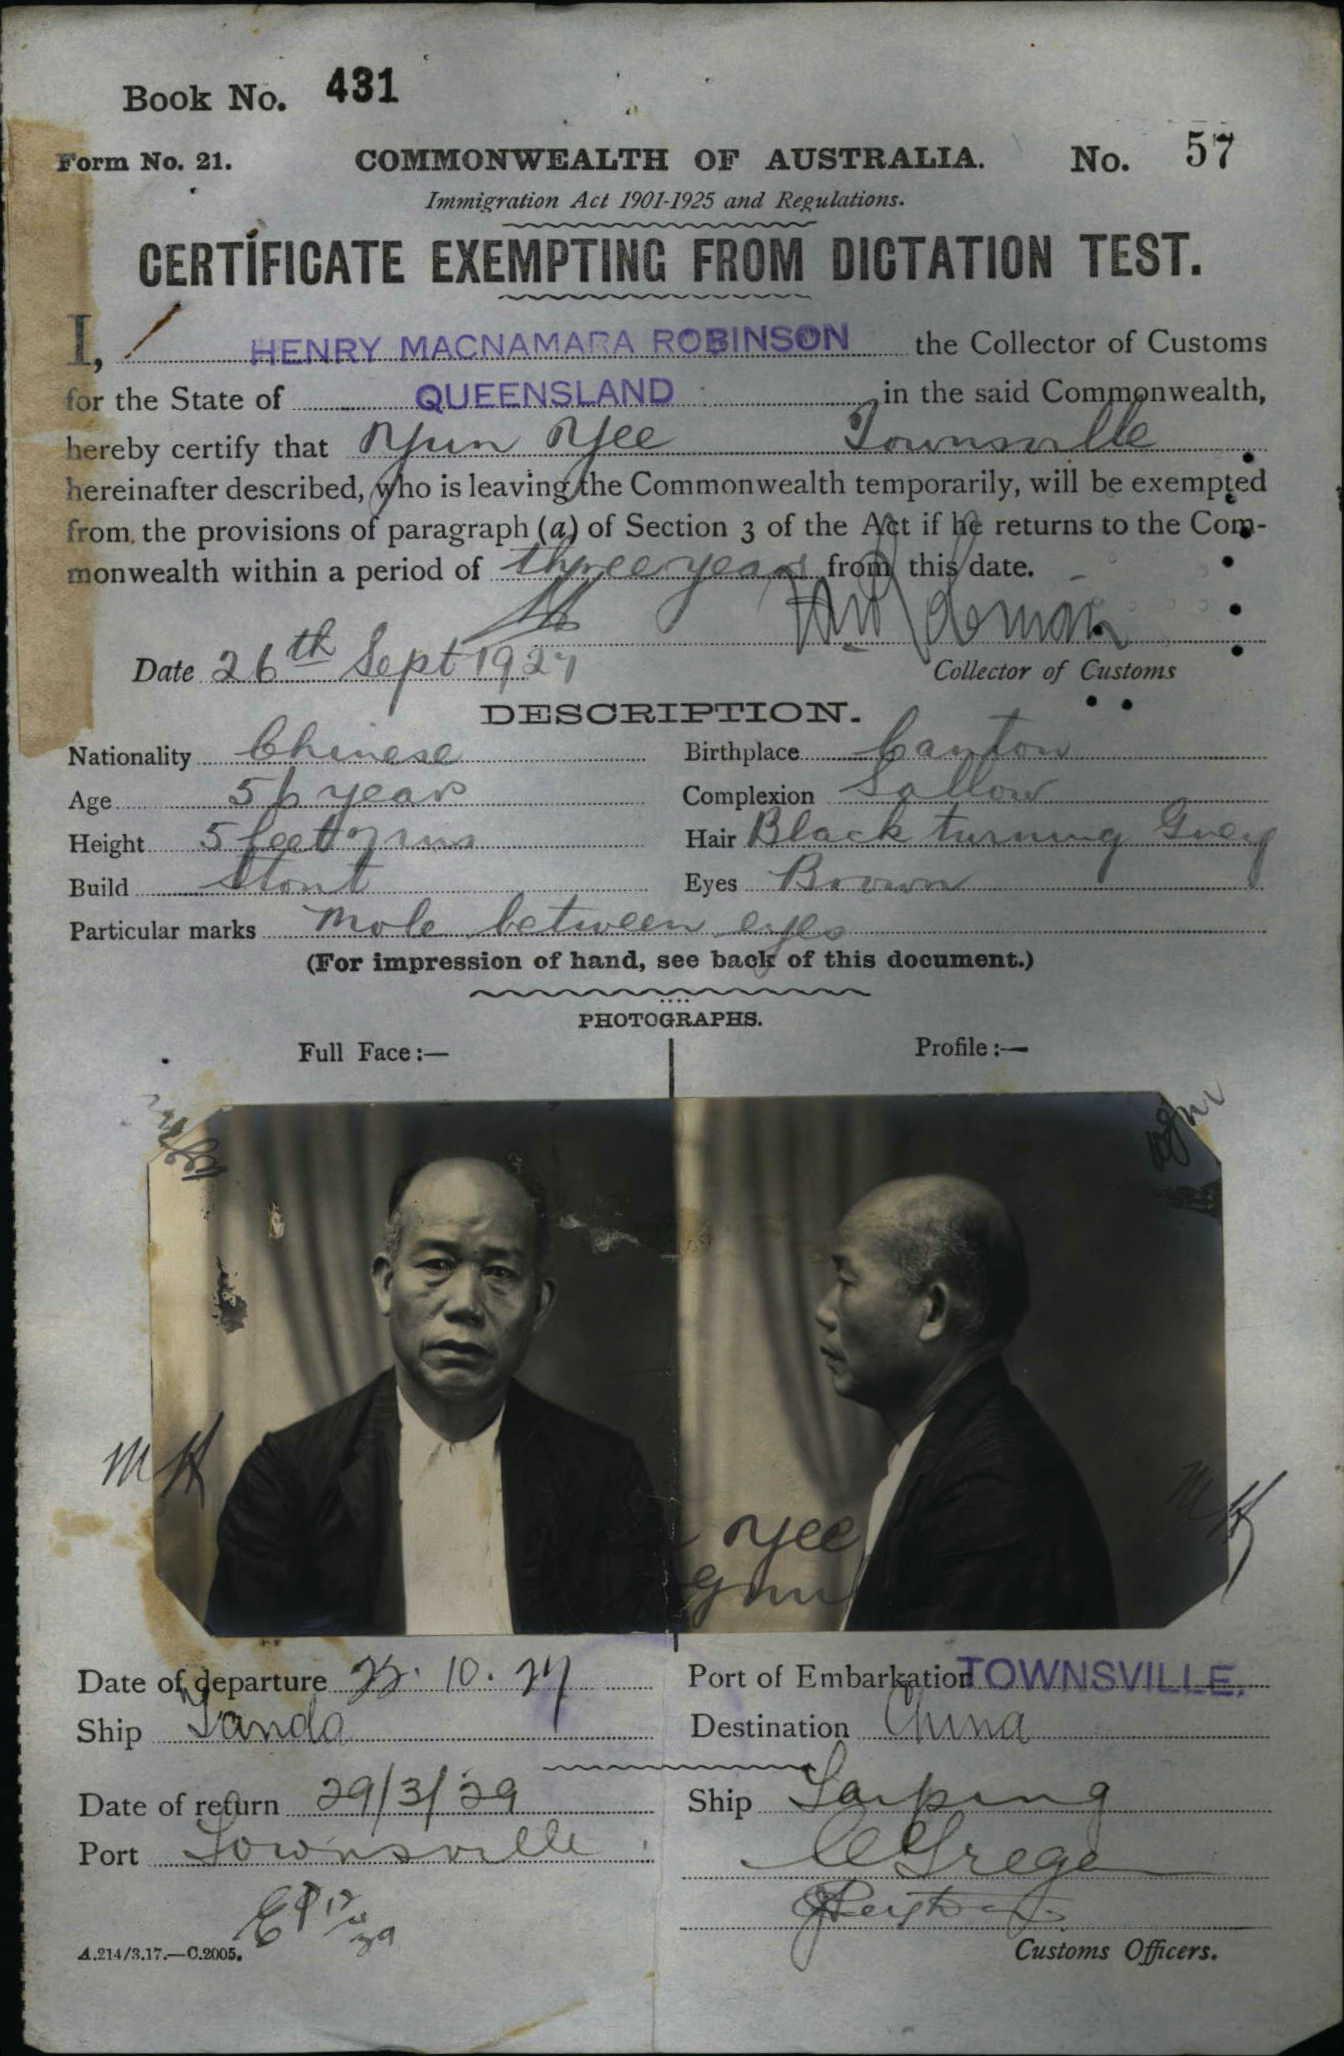 Book No. 431
Form No. 21. COMMONWEALTH OF AUSTRALIA. No. 57
Immigration Act 1901-1925 and Regulations.
CERTIFICATE EXEMPTING FROM DICTATION TEST.
I, HENRY MACNAMARA ROBINSON the Collector of Customs
for the State of QUEENSLAND in the said Commonwealth,
hereby certify that Yun Yee Townsville
hereinafter described, who is leaving the Commonwealth temporarily, will be exempted
from the provisions of paragraph (a) of Section 3 of the Act if he returns to the Com-
monwealth within a period of three years from this date.
Date 26th Sept 1927
Collector of Customs
DESCRIPTION.
Nationality Chinese Birthplace Canton
Age 56 years Complexion Sallow
Height 5 feet 7 ins Hair Black turning Grey
Build Stout Eyes Brown
Particular marks Mole between eyes
(For impression of hand, see back of this document.)
PHOTOGRAPHS.
Full Face:— Profile:—
MH MH
Yee
Date of departure 22.10.27 Port of Embarkation TOWNSVILLE.
Ship Tanda Destination China
Date of return 29/3/29 Ship Taiping
Port Townsville
A.214/3.17.—C.2005. Customs Officers.